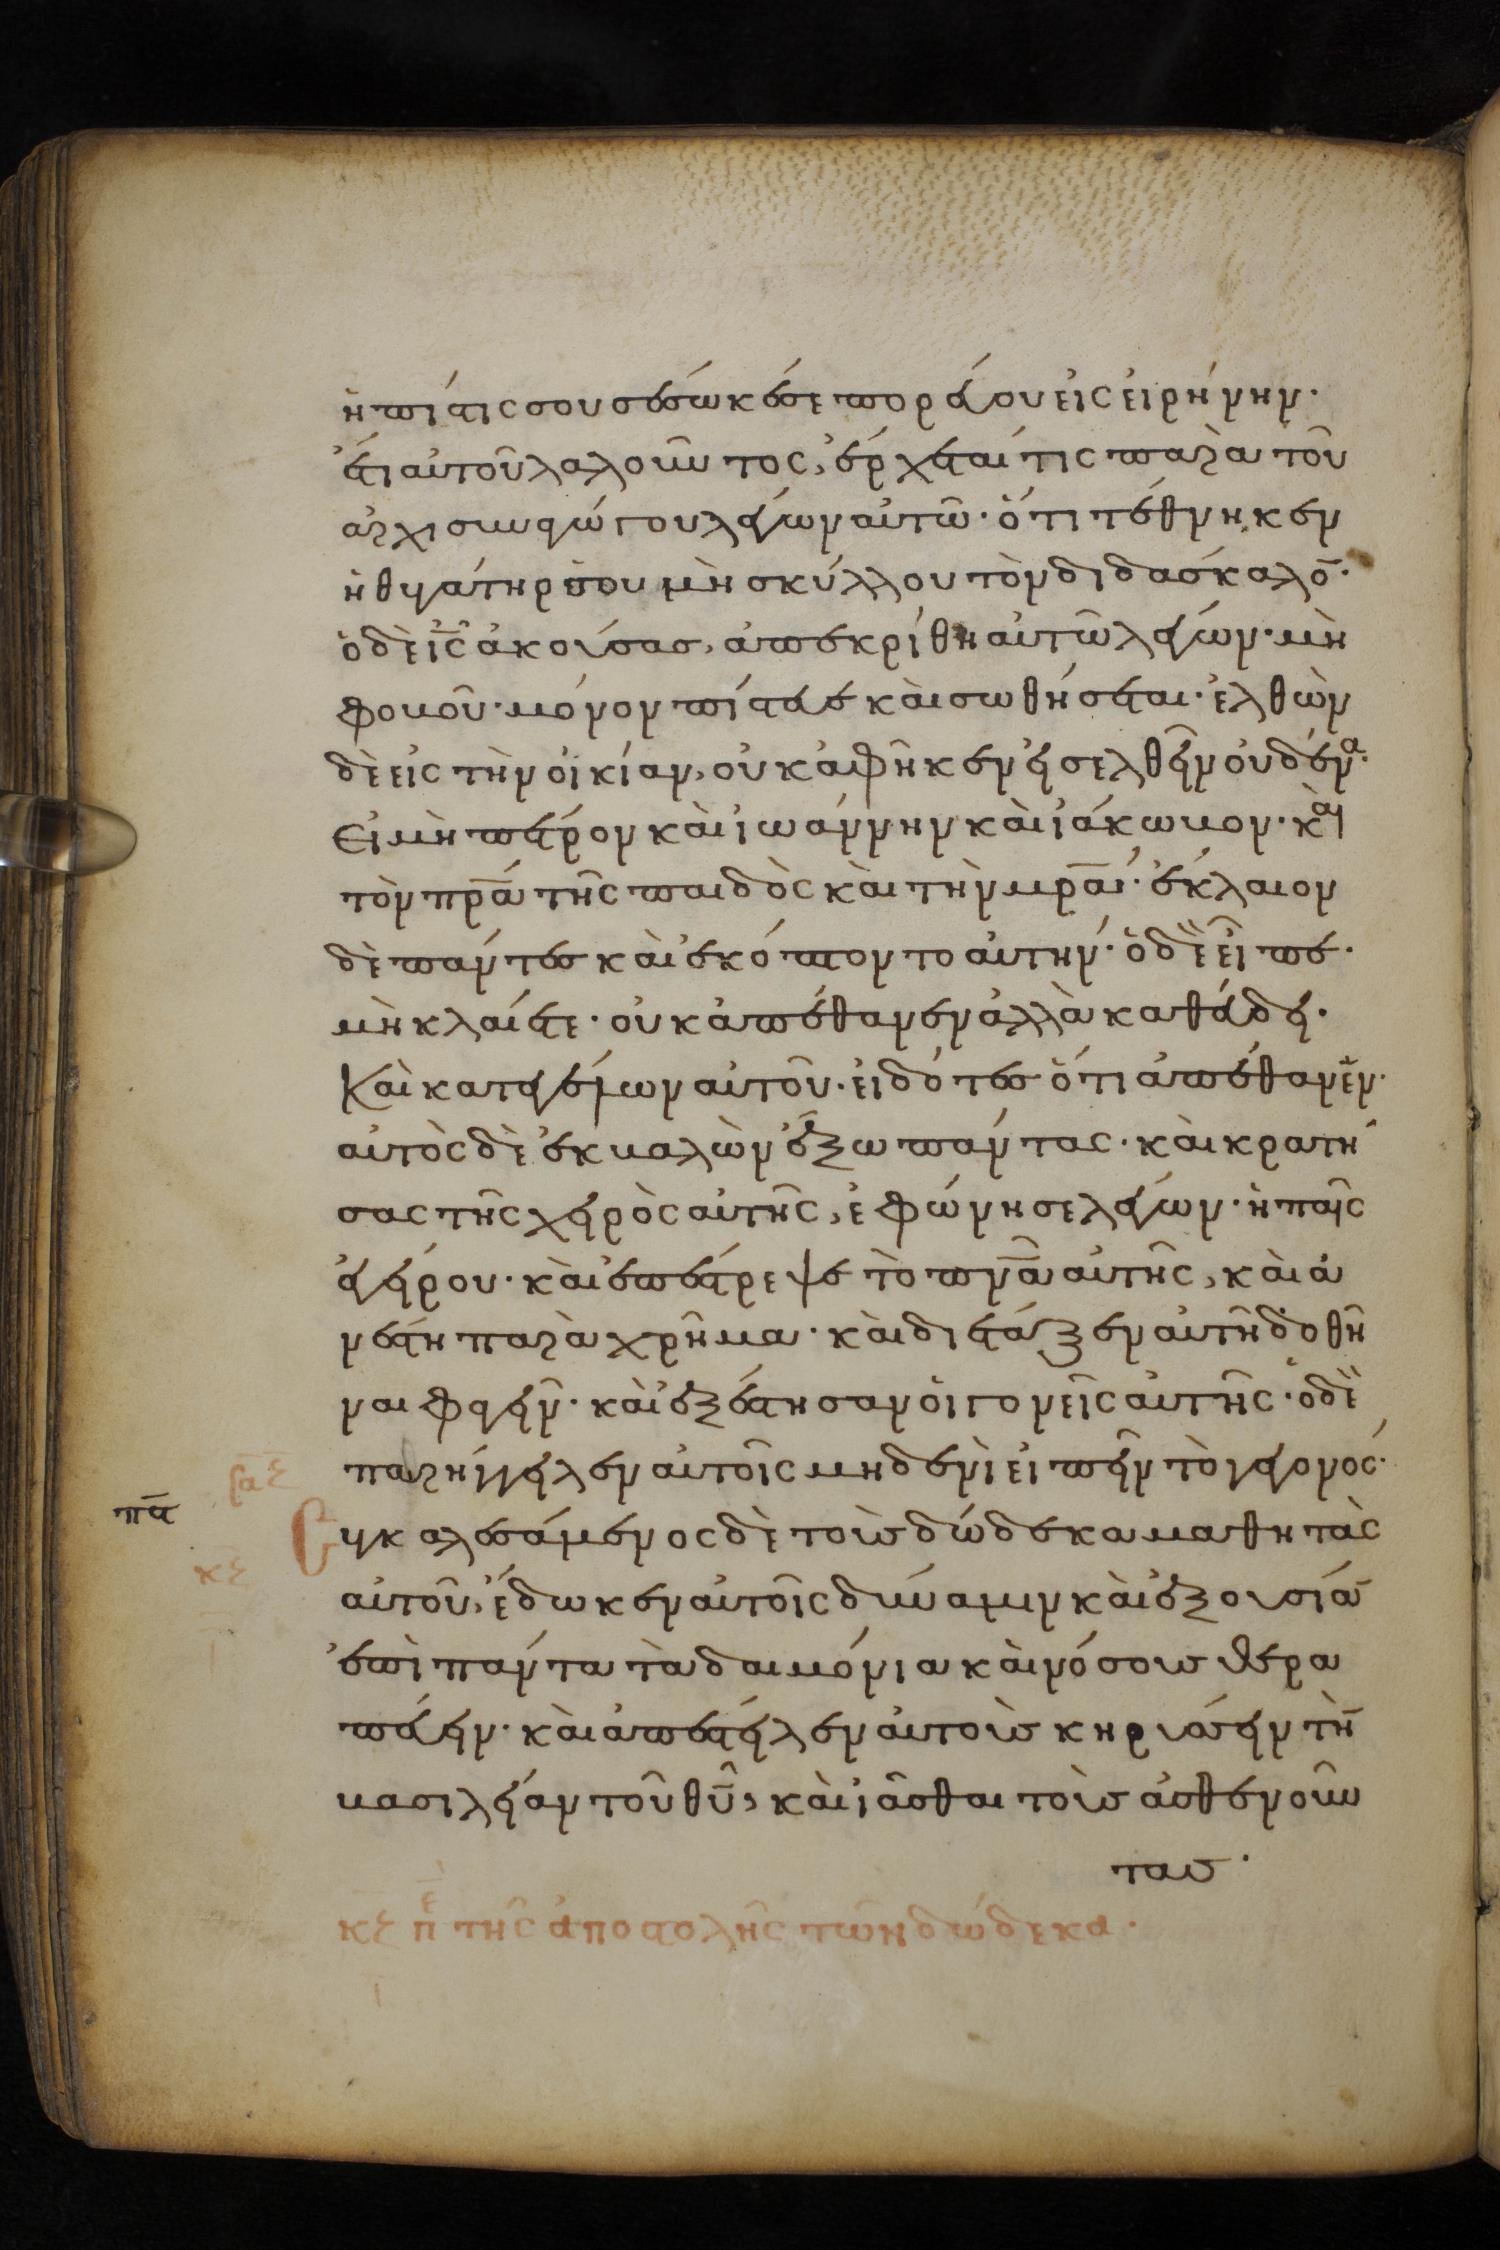 ἡ πίστις σου σέσωκέ σε πορεύου εἰς εἰρήνην·
ἔτι αὐτοῦ λαλοῦντος, ἔρχεταί τις παρὰ τοῦ
ἀρχισυναγώγου λέγων αὐτῶ· ὅτι τέθνηκεν
ἡ θυγάτηρ σου μὴ σκύλλου τὸν διδάσκαλο̅·
ὁ δὲ ι̅ς̅ ἀκούσας, ἀπεκρίθη αὐτῶ λέγων· μὴ
φοβοῦ· μόνον πίστευε καὶ σωθήσεται· ἐλθὼν
δὲ εἰς τὴν οἰκίαν, οὐκ ἀφῆκεν εἰσελθεῖν οὐδένα·
Εἰ μὴ πέτρον καὶ ἰωάννην καὶ ἰάκωβον· καὶ
τὸν π̅ρ̅α̅ τῆς παιδὸς καὶ τὴν μ̅ρ̅α̅· ἔκλαιον
δὲ πάντες καὶ ἐκόπτοντο αὐτήν· ὁ δὲ εἶπε·
μὴ κλαίετε· οὐκ ἀπέθανεν ἀλλὰ καθεύδει·
Καὶ κατεγέλων αὐτοῦ· εἰδότες ὅτι ἀπέθανεν·
αὐτὸς δὲ ἐκβαλὼν ἔξω πάντας· καὶ κρατή
σας τῆς χειρὸς αὐτῆς, ἐφώνησε λέγων· ἡ παῖς
ἐγείρου· καὶ ἐπέστρεψε τὸ π̅ν̅α̅ αὐτῆς, καὶ ἀ
νέστη παραχρῆμα· καὶ διέταξεν αὐτῆ δοθῆ
ναι φαγεῖν· καὶ ἐξέστησαν οἱ γονεῖς αὐτῆς· ὁ δὲ
παρήγγειλεν αὐτοῖς μηδενὶ εἰπεῖν τὸ γεγονός·
πα̅ Συγκαλεσάμενος δὲ τοὺς δώδεκα μαθητὰς
κ̅ς̅
αὐτοῦ, ἔδωκεν αὐτοῖς δύναμιν καὶ ἐξουσία̅
ἐπὶ πάντα τὰ δαιμόνια καὶ νόσους θερα
πεύειν· καὶ ἀπέστειλεν αὐτοὺς κηρύσσειν τὴ̅
βασιλείαν τοῦ θ̅υ̅, καὶ ἰᾶσθαι τοὺς ἀσθενοῦν
τας·
κ̅ς̅ πε τῆς ἀποστολῆς τῶν δώδεκα·